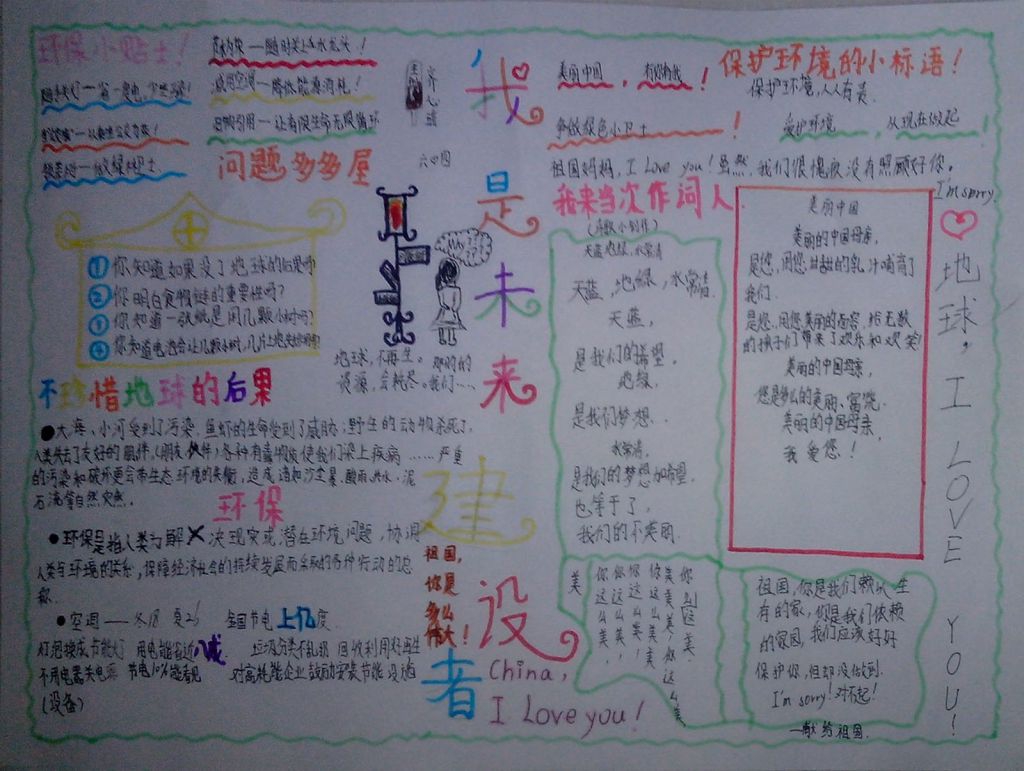 环保小贴士！
节约水——随时关上水龙头！
随手关灯——省一度电，少些污染！
一降低能源消耗！
旧物利用——让有限生命无限循环
做绿色卫士
问题多多屋
①你知道如果没了地球的后果吗
②你明白食物链的重要性吗？
③你知道一张纸是用几颗小树吗？
④你知道电池会让几颗小树、几片土地
不珍惜地球的后果
●大海、小河受到了污染，鱼虾的生命受到了威胁；野生的动物杀死了，
人类失去了友好的
各种有毒物质使我们染上疾病……严重
的污染和破坏更会带生态环境的失衡，造成诸如沙尘暴、酸雨、洪水、泥
石流等自然灾燃。
环保
●环保是指人类为解决现实或潜在环境问题，协调
人类与环境的关系，保障经济社会的持续发展而采取的各种行动的总
称。
●空调——冬18 夏26 全国节电上亿度
灯泡换成节能灯 用电能省近八成 垃圾分类不乱扔 回收利用好再生
不用电器关电源 节电10%能看见 对高耗能企业鼓励安装节能设施
（设备）
齐心谱
六四
Why?
地球，不再生。
资源，会耗尽。
那时的
我们……
我是未来建设者
祖国，
你是
多么
伟大！
China,
I Love you！
美丽中国，有你有我！
保护环境的小标语！
保护环境，人人有责
争做绿色小卫士！
爱护环境，从现在做起！
祖国妈妈，I Love you！虽然，我们很愧疚没有照顾好你。
I'm sorry.
我来当次作词人
天蓝地绿，水常清
天蓝，地绿，水常清
天蓝，
是我们的希望，
地绿，
是我们梦想，
水常清，
是我们的梦想加希望
也等于了，
我们的不美丽
美丽中国
美丽的中国母亲，
是您，用您甜甜的乳汁哺育了
我们
是您，用您美丽的面容，给无数
的孩子们带来了欢乐和欢笑
美丽的中国母亲，
您是多么的美丽、富饶
美丽的中国母亲，
我爱您！
地球，I LOVE YOU！
美
你你你你美你
这这这这么
么么么么美
美，美，美！美
祖国，你是我们赖以生
有的家，你是我们依赖
的家园，我们应该好好
保护你，但却没做到。
I'm sorry！对不起！
——献给祖国